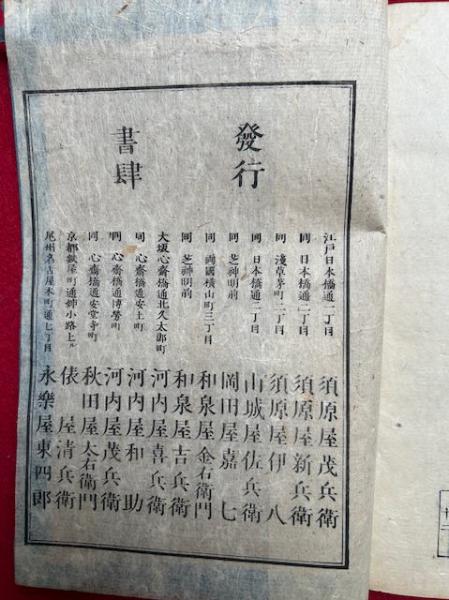 發行
書肆
江戸日本橋通一丁目 須原屋茂兵衛
同 日本橋通二丁目 須原屋新兵衛
同 淺草茅町二丁目 須原屋伊八
同 日本橋通二丁目 山城屋佐兵衛
同 芝神明前 岡田屋嘉七
同 兩國横山町三丁目 和泉屋金右衛門
同 芝神明前 和泉屋吉兵衛
大坂心齋橋通北久太郎町 河内屋喜兵衛
同 心齋橋通安土町 河内屋和助
同 心齋橋通博勞町 河内屋茂兵衛
同 心齋橋通安堂寺町 秋田屋太右衛門
京都 屋町通姉小路上ル 俵屋清兵衛
尾州名古屋本町通七丁目 永樂屋東四郎